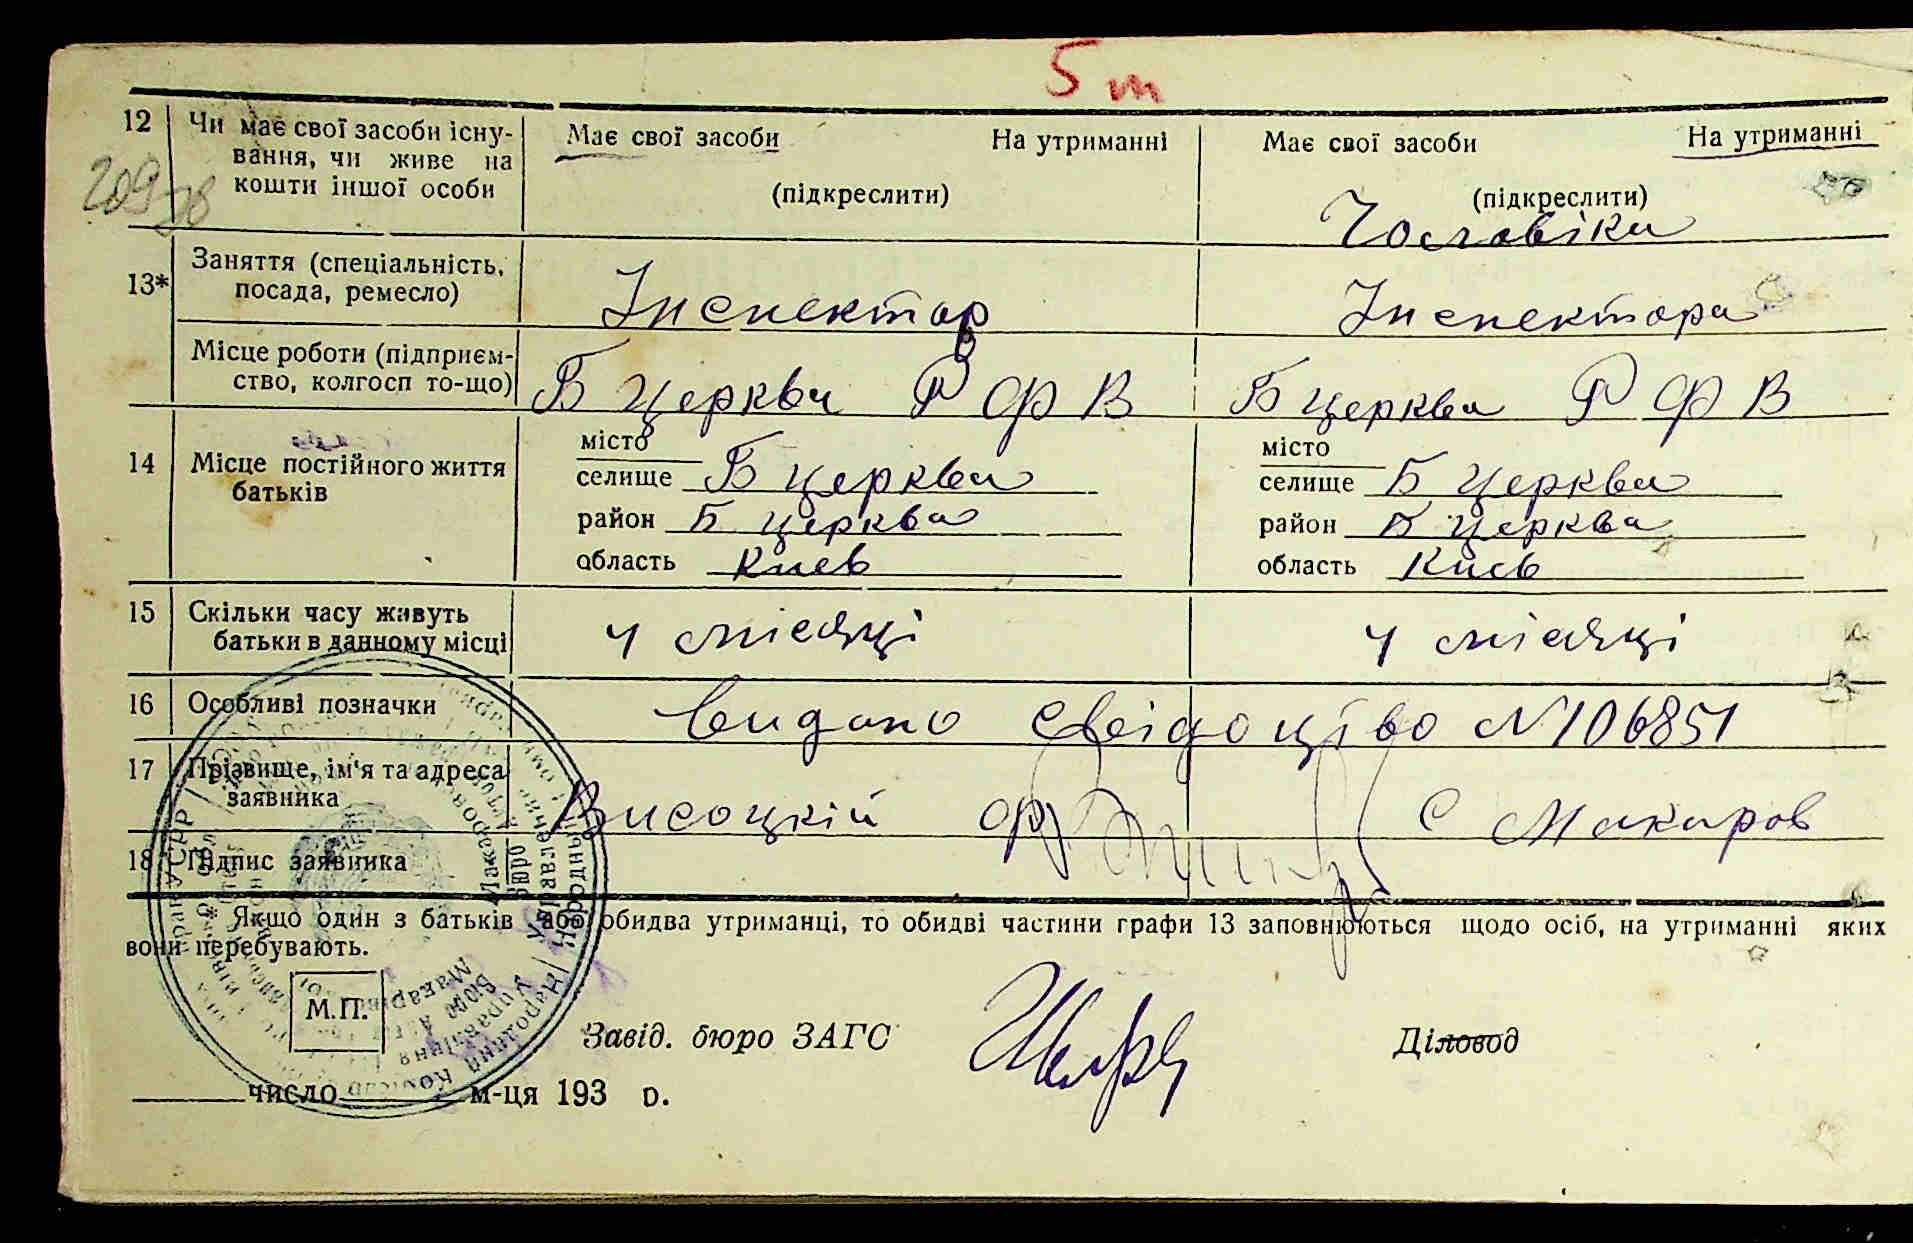 5 т
12 Чи має свої засоби існу-
вання, чи живе на
кошти іншої особи
Має свої засоби На утриманні
(підкреслити)
Має свої засоби На утриманні
(підкреслити)
Чоловіка
13* Заняття (спеціальність,
посада, ремесло)
Інспектор Інспектора
Місце роботи (підприєм-
ство, колгосп то-що)
Б Церква Р Ф В Б Церква Р Ф В
14 Місце постійного життя
батьків
місто
селище Б Церква
район Б Церква
область Киев
місто
селище Б Церква
район Б Церква
область Київ
15 Скільки часу живуть
батьки в данному місці
4 місяці 4 місяці
16 Особливі позначки
Видано свідоцтво N 106851
17 Прізвище, ім'я та адреса
заявника
Висоцкій Ф С Макаров
18 Підпис заявника
* Якщо один з батьків або обидва утриманці, то обидві частини графи 13 заповнюються щодо осіб, на утриманні яких
вони перебувають.
М.П.
Завід. бюро ЗАГС Діловод
число м-ця 193 р.